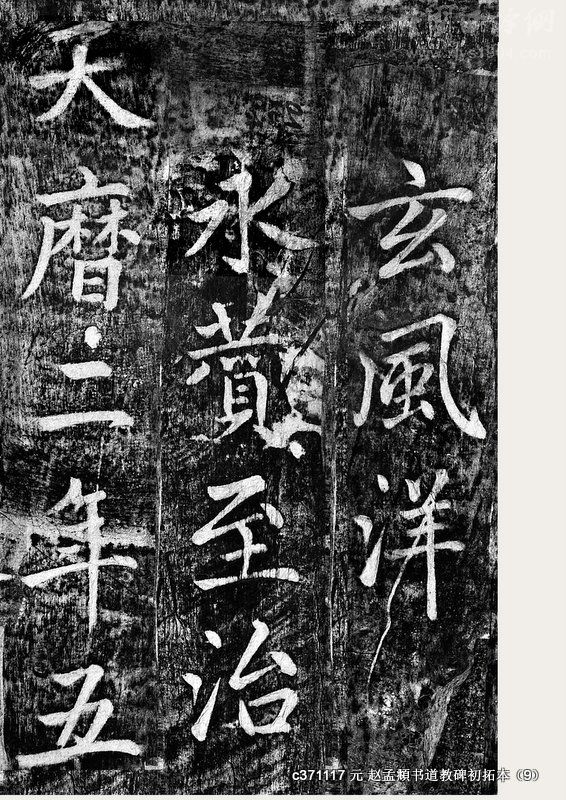 玄風洋
永贊至治
天曆二年五
c371117 元 赵孟頫书道教碑初拓本（9）